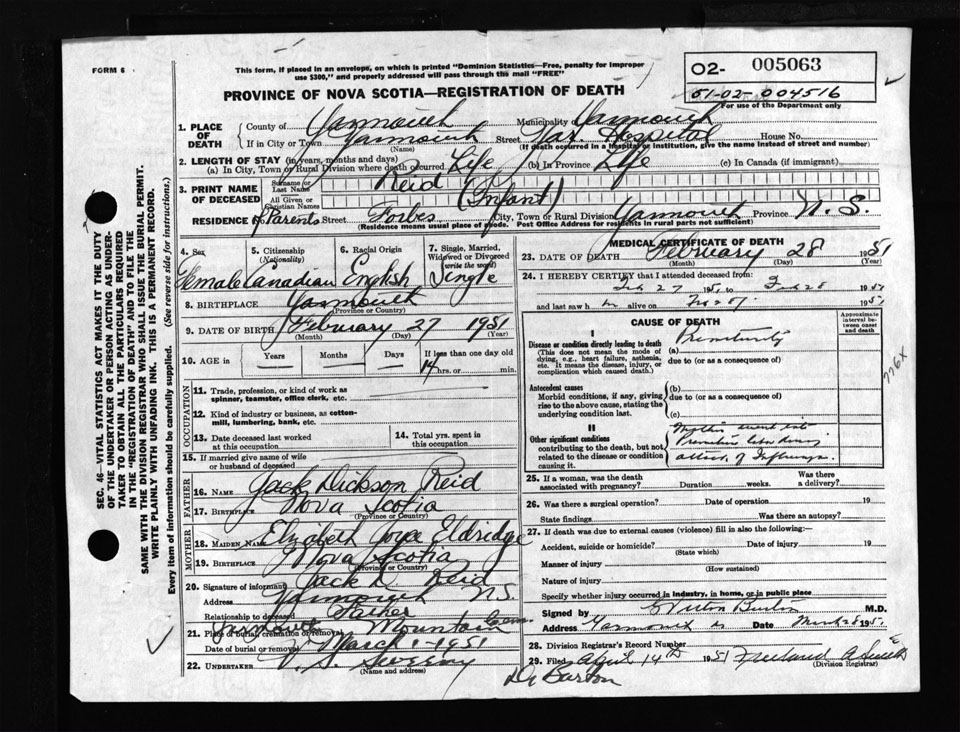 FORM 6
This form, if placed in an envelope, on which is printed "Dominion Statistics—Free, penalty for improper
use $300," and properly addressed will pass through the mail "FREE"
O2- 005063
51-02-004516
For use of the Department only
PROVINCE OF NOVA SCOTIA—REGISTRATION OF DEATH
1. PLACE OF DEATH County of Yarmouth Municipality of Yarmouth
If in City or Town Yarmouth Street Yar. Hospital House No.
(Name) (If death occurred in a hospital or institution, give the name instead of street and number)
2. LENGTH OF STAY (in years, months and days)
(a) In City, Town or Rural Division where death occurred Life (b) In Province Life (c) In Canada (if immigrant)
3. PRINT NAME OF DECEASED Surname or Last Name Reid
All Given or Christian Names (Infant)
RESIDENCE of Parents Street Forbes City, Town or Rural Division Yarmouth Province N. S.
(Residence means usual place of abode. Post Office Address for residents in rural parts not sufficient)
4. Sex Female
5. Citizenship (Nationality) Canadian
6. Racial Origin English
7. Single, Married, Widowed or Divorced (write the word) Single
8. BIRTHPLACE Yarmouth
(Province or Country)
9. DATE OF BIRTH February 27 1951
(Month) (Day) (Year)
10. AGE in Years Months Days If less than one day old
14 hrs. or min.
OCCUPATION
11. Trade, profession, or kind of work as spinner, teamster, office clerk, etc.
12. Kind of industry or business, as cotton-mill, lumbering, bank, etc.
13. Date deceased last worked at this occupation
14. Total yrs. spent in this occupation
15. If married give name of wife or husband of deceased
FATHER
16. NAME Jack Dickson Reid
17. BIRTHPLACE Nova Scotia
(Province or Country)
MOTHER
18. MAIDEN NAME Elizabeth Joyce Eldridge
19. BIRTHPLACE Nova Scotia
(Province or Country)
20. Signature of informant Jack D. Reid
Address Yarmouth N.S.
Relationship to deceased Father
21. Place of burial, cremation or removal Yarmouth Mountain Cem.
Date of burial or removal March 1 - 1951
22. UNDERTAKER V. S. Sweeny
(Name and address)
MEDICAL CERTIFICATE OF DEATH
23. DATE OF DEATH February 28 1951
(Month) (Day) (Year)
24. I HEREBY CERTIFY that I attended deceased from:
Feb 27 1951 to Feb 28 1951
and last saw h alive on Feb 28 1951
CAUSE OF DEATH
Approximate interval between onset and death
I
Disease or condition directly leading to death
(This does not mean the mode of dying, e.g., heart failure, asthenia, etc. It means the disease, injury, or complication which caused death.)
(a) Prematurity
due to (or as a consequence of)
776X
Antecedent causes
Morbid conditions, if any, giving rise to the above cause, stating the underlying condition last.
(b)
due to (or as a consequence of)
(c)
II
Other significant conditions contributing to the death, but not related to the disease or condition causing it.
Mother went into
Premature labor during
attack of Influenza.
25. If a woman, was the death associated with pregnancy? Duration weeks. Was there a delivery?
26. Was there a surgical operation? Date of operation 19
State findings Was there an autopsy?
27. If death was due to external causes (violence) fill in also the following:—
Accident, suicide or homicide? Date of injury 19
(State which)
Manner of injury
(How sustained)
Nature of injury
Specify whether injury occurred in industry, in home, or in public place
Signed by Burton M.D.
Address Yarmouth Date March 28 1951
28. Division Registrar's Record Number
29. Filed April 14th 1951 Freeland A Smith
(Division Registrar)
Dr Barton
SEC. 46—VITAL STATISTICS ACT MAKES IT THE DUTY
OF THE UNDERTAKER OR PERSON ACTING AS UNDER-
TAKER TO OBTAIN ALL THE PARTICULARS REQUIRED
IN THE "REGISTRATION OF DEATH" AND TO FILE THE
SAME WITH THE DIVISION REGISTRAR WHO SHALL ISSUE THE BURIAL PERMIT.
WRITE PLAINLY WITH UNFADING INK. THIS IS A PERMANENT RECORD.
Every item of information should be carefully supplied. (See reverse side for instructions.)